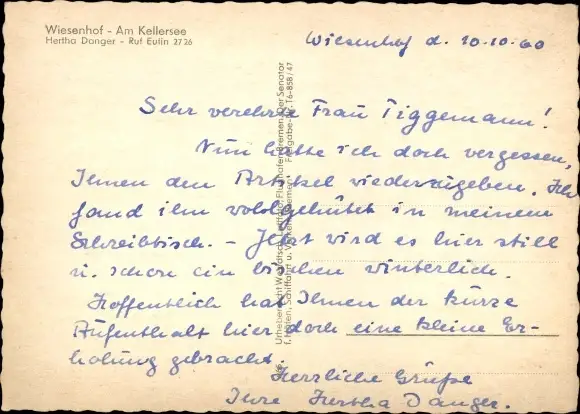 Wiesenhof - Am Kellersee
Hertha Danger - Ruf Eutin 2726
Wiesenhof d. 10.10.60
Sehr verehrte Frau Tiggemann!
Nun hatte ich doch vergessen,
Ihnen den Artikel wiederzugeben. Ich
fand ihn wohlgehütet in meinem
Schreibtisch. - Jetzt wird es hier still
u. schon ein bischen winterlich.
Hoffentlich hat Ihnen der kurze
Aufenthalt hier doch eine kleine Er-
holung gebracht.
Herzliche Grüße
Ihre Hertha Danger.
Freigabe-Nr. T6-858/47